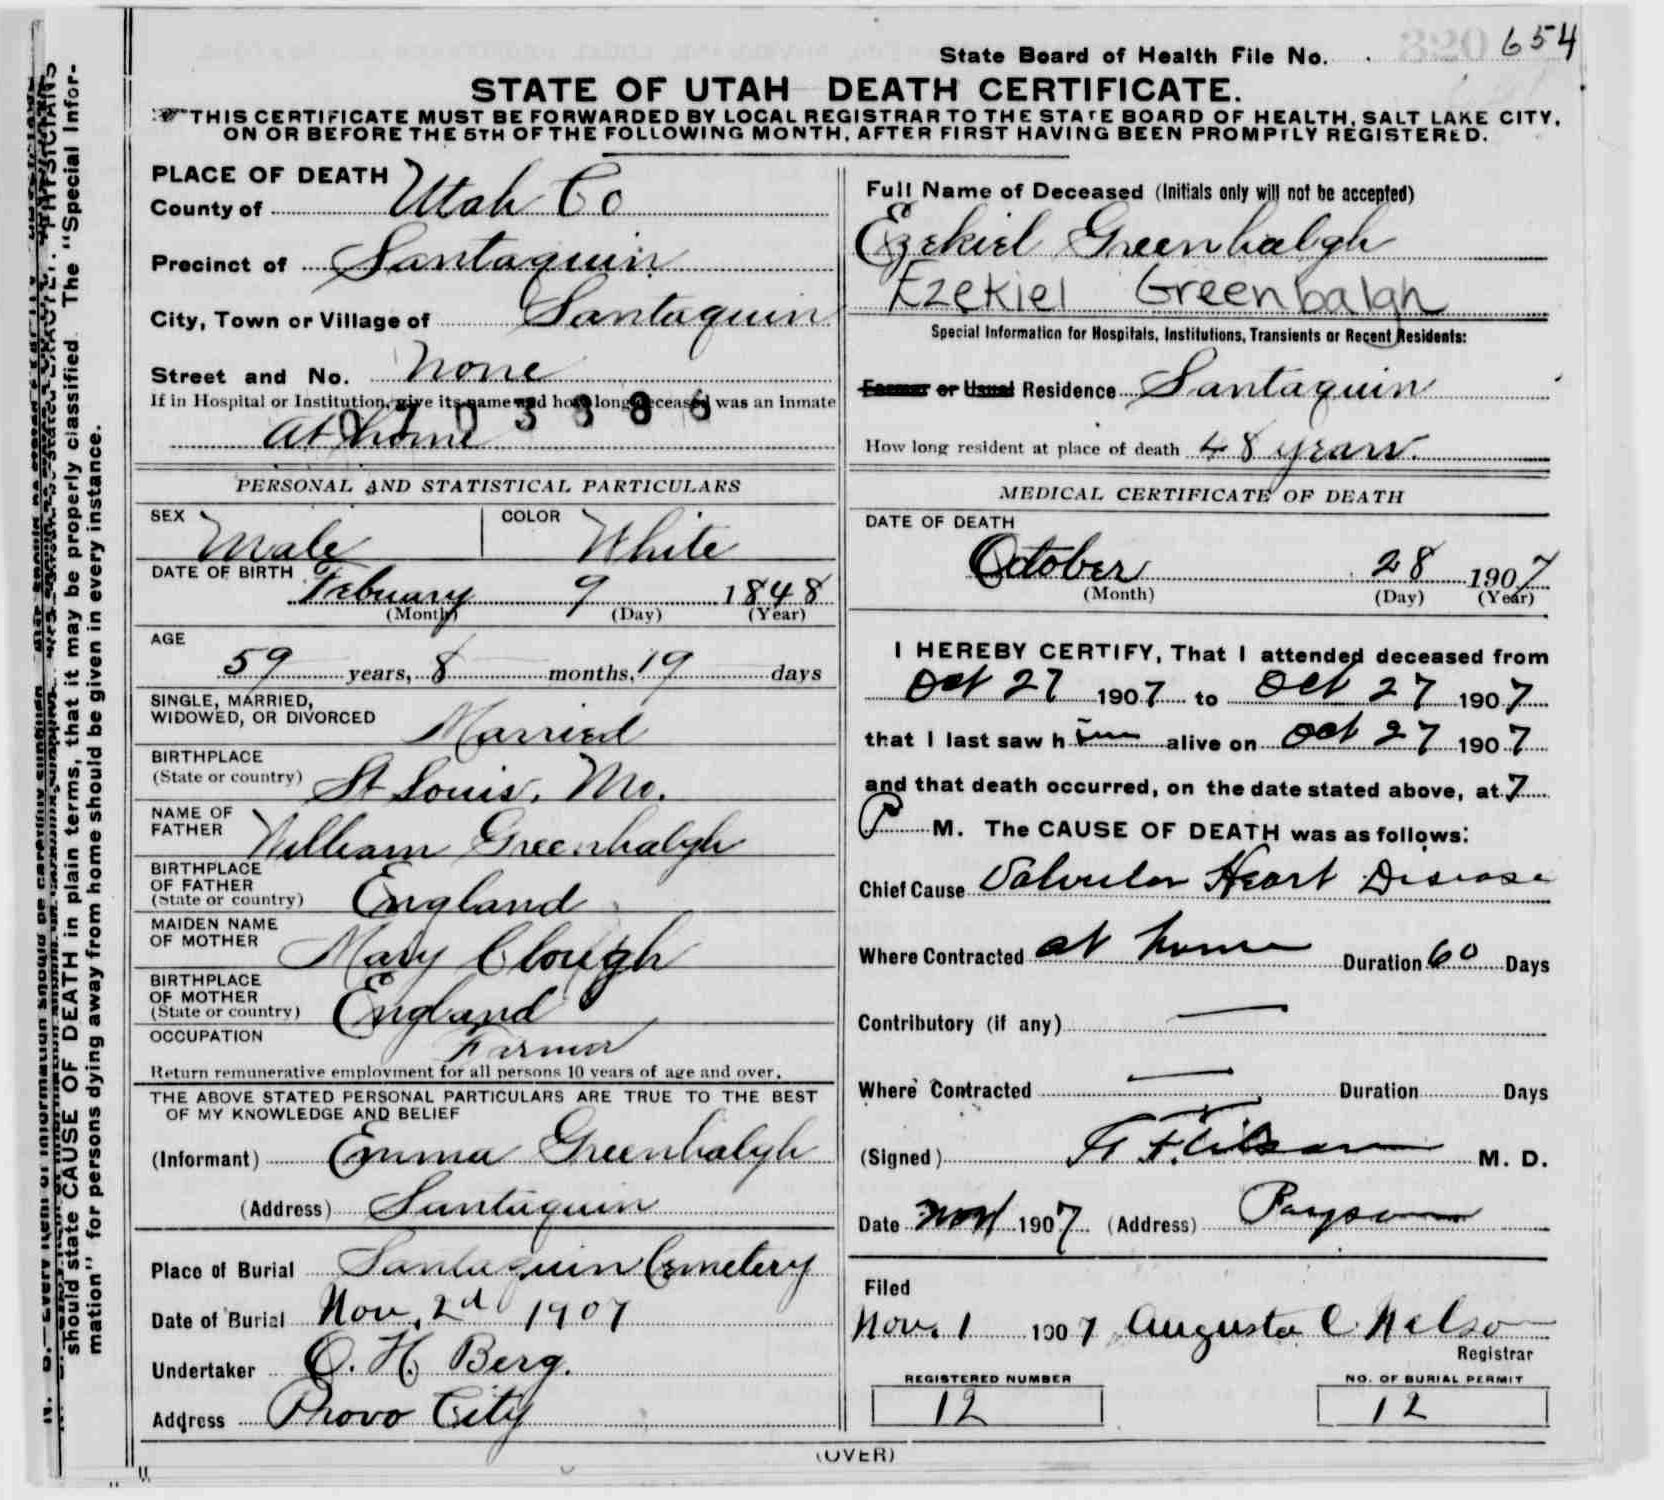 State Board of Health File No. 654
STATE OF UTAH DEATH CERTIFICATE.
THIS CERTIFICATE MUST BE FORWARDED BY LOCAL REGISTRAR TO THE STATE BOARD OF HEALTH, SALT LAKE CITY,
ON OR BEFORE THE 5TH OF THE FOLLOWING MONTH, AFTER FIRST HAVING BEEN PROMPTLY REGISTERED.
PLACE OF DEATH
County of Utah Co
Precinct of Santaquin
City, Town or Village of Santaquin
Street and No. None
If in Hospital or Institution, give its name and how long deceased was an Inmate
At home
PERSONAL AND STATISTICAL PARTICULARS
SEX Male COLOR White
DATE OF BIRTH Febuary 9 1848
(Month) (Day) (Year)
AGE
59 years, 8 months, 19 days
SINGLE, MARRIED,
WIDOWED, OR DIVORCED Married
BIRTHPLACE
(State or country) St Louis, Mo.
NAME OF
FATHER William Greenhalgh
BIRTHPLACE
OF FATHER
(State or country) England
MAIDEN NAME
OF MOTHER Mary Clough
BIRTHPLACE
OF MOTHER
(State or country) England
OCCUPATION Farmer
Return remunerative employment for all persons 10 years of age and over.
THE ABOVE STATED PERSONAL PARTICULARS ARE TRUE TO THE BEST
OF MY KNOWLEDGE AND BELIEF
(Informant) Emma Greenhalgh
(Address) Santaquin
Place of Burial Santaquin Cemetery
Date of Burial Nov. 2d 1907
Undertaker O. H. Berg.
Address Provo City
Full Name of Deceased (Initials only will not be accepted)
Ezekiel Greenhalgh
Ezekiel Greenhalgh
Special Information for Hospitals, Institutions, Transients or Recent Residents:
Former or Usual Residence Santaquin
How long resident at place of death 48 years.
MEDICAL CERTIFICATE OF DEATH
DATE OF DEATH
October 28 1907
(Month) (Day) (Year)
I HEREBY CERTIFY, That I attended deceased from
Oct 27 1907 to Oct 27 1907
that I last saw him alive on Oct 27 1907
and that death occurred, on the date stated above, at 7
P M. The CAUSE OF DEATH was as follows:
Chief Cause Valvular Heart Disease
Where Contracted at home Duration 60 Days
Contributory (if any) —
Where Contracted — Duration Days
(Signed) M. D.
Date 1907 (Address) Payson
Filed
Nov. 1 1907 Augusta C Nelson
Registrar
REGISTERED NUMBER NO. OF BURIAL PERMIT
12 12
(OVER)
should state CAUSE OF DEATH in plain terms, that it may be properly classified. The "Special Infor-
mation" for persons dying away from home should be given in every instance.